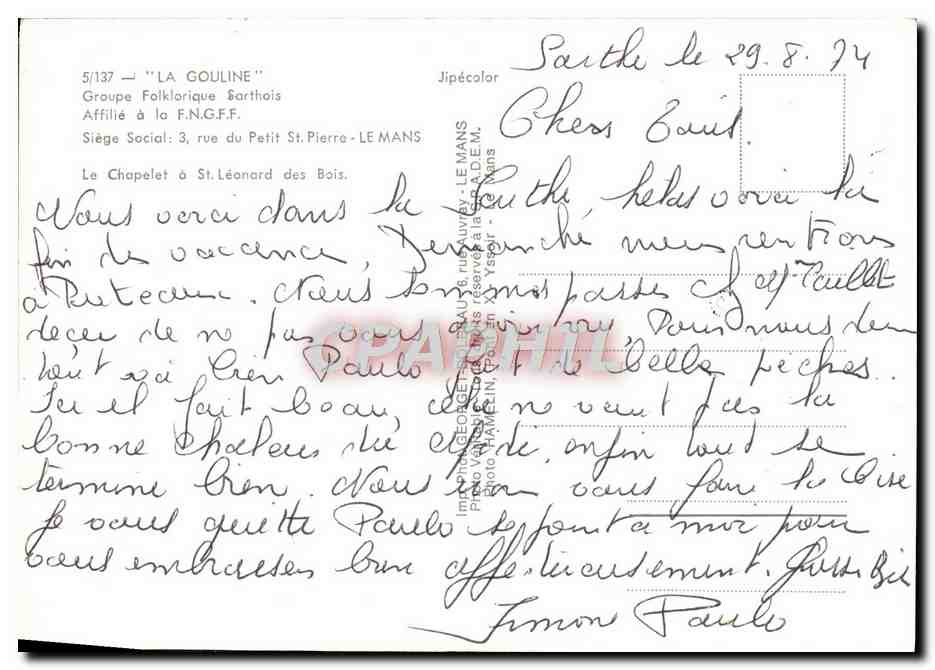 Sarthe le 29.8.74
5/137 — "LA GOULINE"
Groupe Folklorique Sarthois
Affilié à la F.N.G.F.F.
Siège Social: 3, rue du Petit St. Pierre - LE MANS
Le Chapelet à St. Léonard des Bois.
Jipécolor
Chers tous
Nous voici dans la Sarthe, helas voici la
fin des vacance, Dimanche nous rentrons
à Puteaux. Nous sommes passes
deçu de ne pas vous voir, Pour nous deux
tout va bien Paulo fait de belle pêches..
Ici il fait beau, cela ne vaut pas la
bonne chaleur du Midi, enfin tout se
termine bien. Nous irons vous faire la bise
Je vous quitte Paulo se joint a moi pour
vous embrasser bien affectueusement. Grosse Bise
Simone Paulo
Imp. Phot. GEORGET-SOUDRIAU 16, rue Auvray - LE MANS
Photo Véritable, Tous droits réservés à la S.P.A.D.E.M.
Photo HAMELIN, Le Mans
CPAPHIL